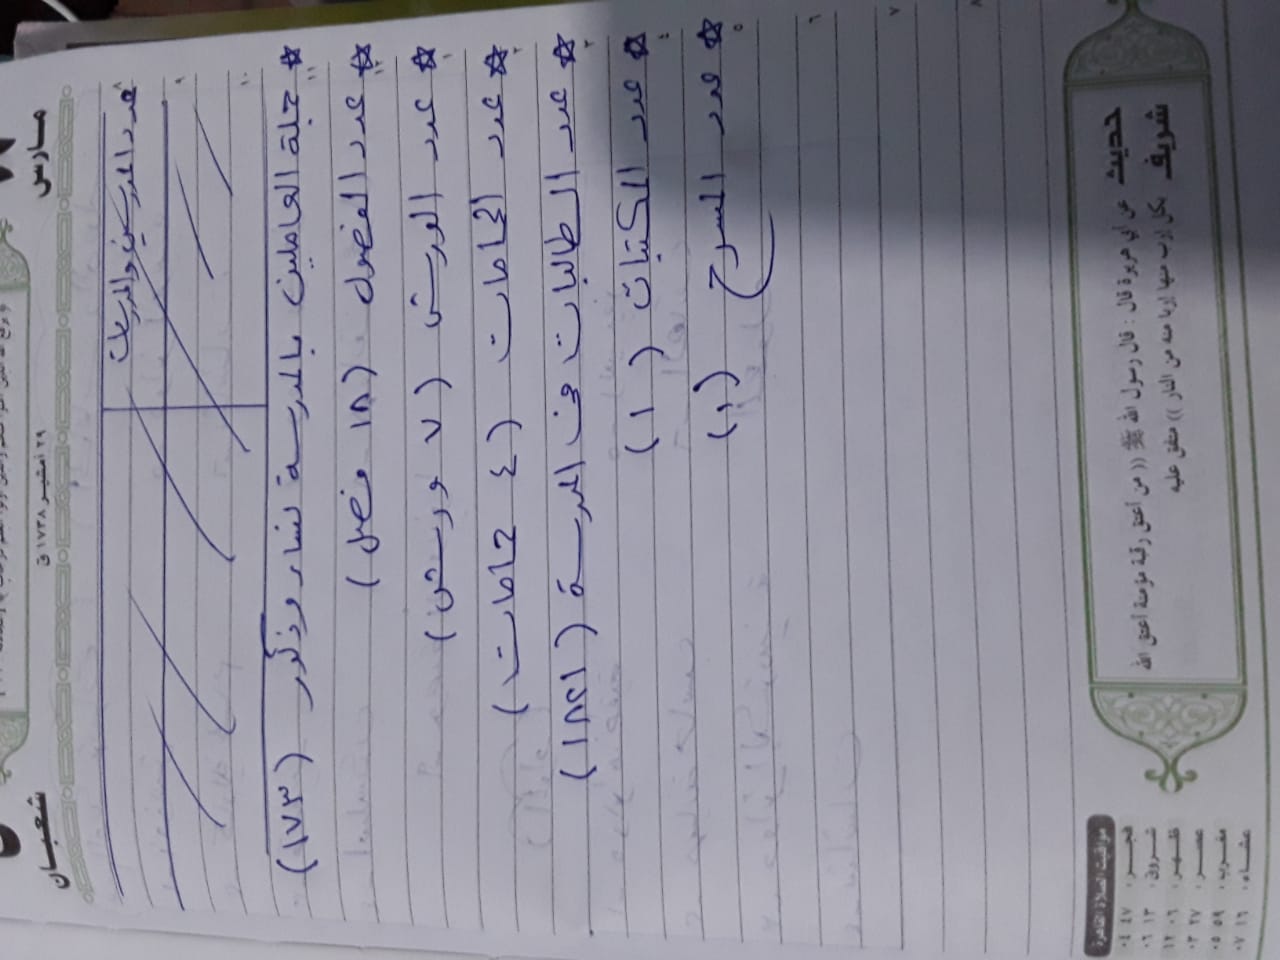 مارس
شعبان
٢٩ أمشير ١٧٣٨ ق
عدد المدرسين والمدرسات
☆ جملة العاملين بالمدرسة نساء وذكور (١٧٣)
☆ عدد الفصول (١٨ فصل)
☆ عدد الورش (٧ ورش)
☆ عدد الحمامات (٤ حمامات)
☆ عدد الطالبات فى المدرسة
☆ عدد المكتبات (١)
☆ عدد المسرح (١)
٨
٩
١٠
١١
١٢
١
٢
٣
٤
٥
٦
٧
٨
حديث شريف
عن أبي هريرة قال : قال رسول الله ﷺ (( من أعتق رقبة مؤمنة أعتق الله
بكل إرب منها إربا منه من النار )) متفق عليه
مواقيت الصلاة القاهرة
فجـر : ٤٧ ٠٤
شروق : ١٣ ٠٦
ظهـر : ٠٦ ١٢
عصـر : ٢٧ ٠٣
مغرب : ٥٩ ٠٥
عشـاء : ١٦ ٠٧